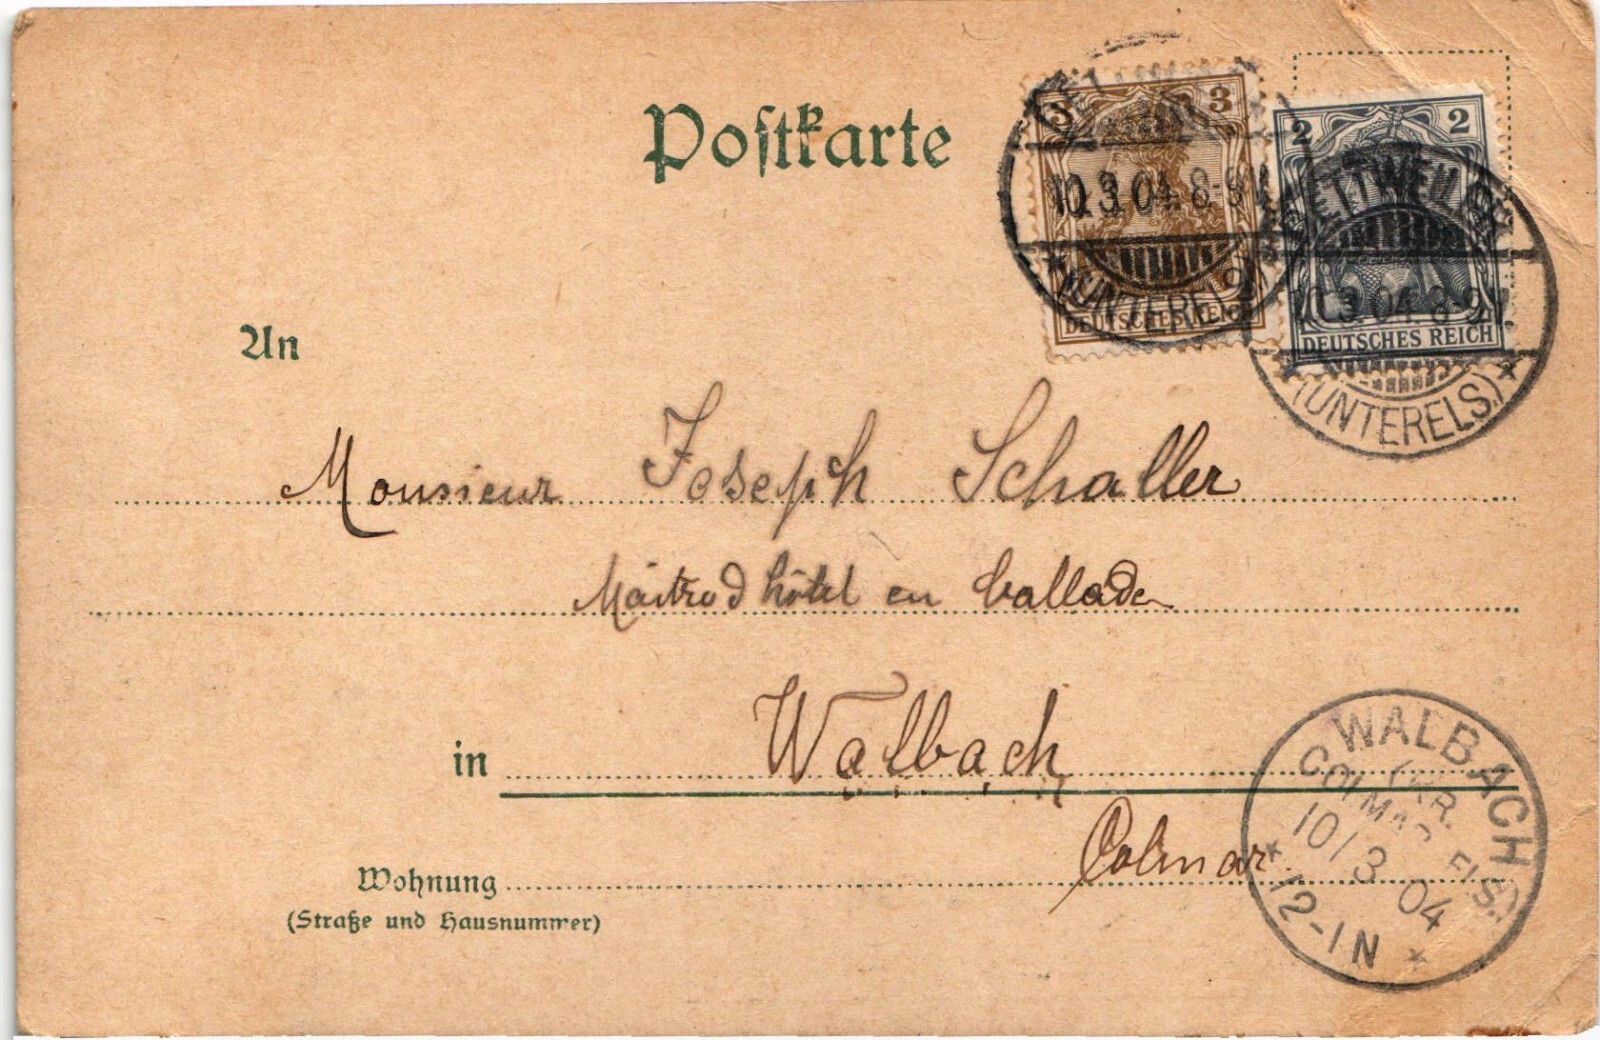 Postkarte
3 3
2 2
10.3.04. 8-9V.
DETTWEILER
10.3.04. 8-9V.
DEUTSCHES REICH
DEUTSCHES REICH
(UNTERELS.)
(UNTERELS.)
An
Monsieur Joseph Schaller
Maitre d hôtel en
in Walbach
Colmar
WALBACH
(KR.
COLMAR ELS.)
10/3 04
12-1N
Wohnung
(Straße und Hausnummer)